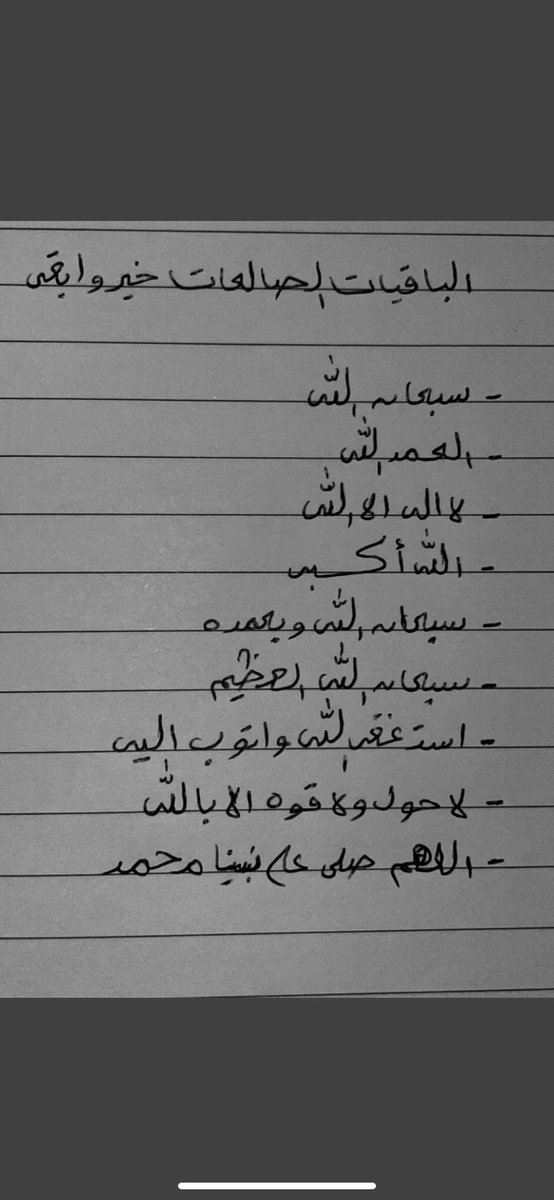 الباقيات الصالحات خير وابقى
- سبحان الله
- الحمد الله
- لا اله الا الله
- الله أكبر
- سبحان الله وبحمده
- سبحان الله العظيم
- استغفر الله واتوب اليه
- لا حول ولا قوه الا بالله
- اللهم صلى على نبينا محمد